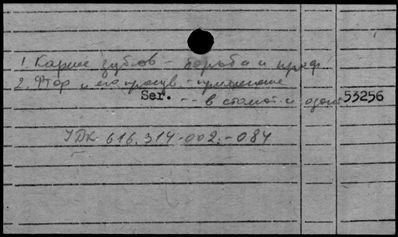 1. Кариес зубов - борьба и проф.
2. Фтор и его произв. - применение
Ser. -- в стомат. и 53256
УДК 616.314-002.-084